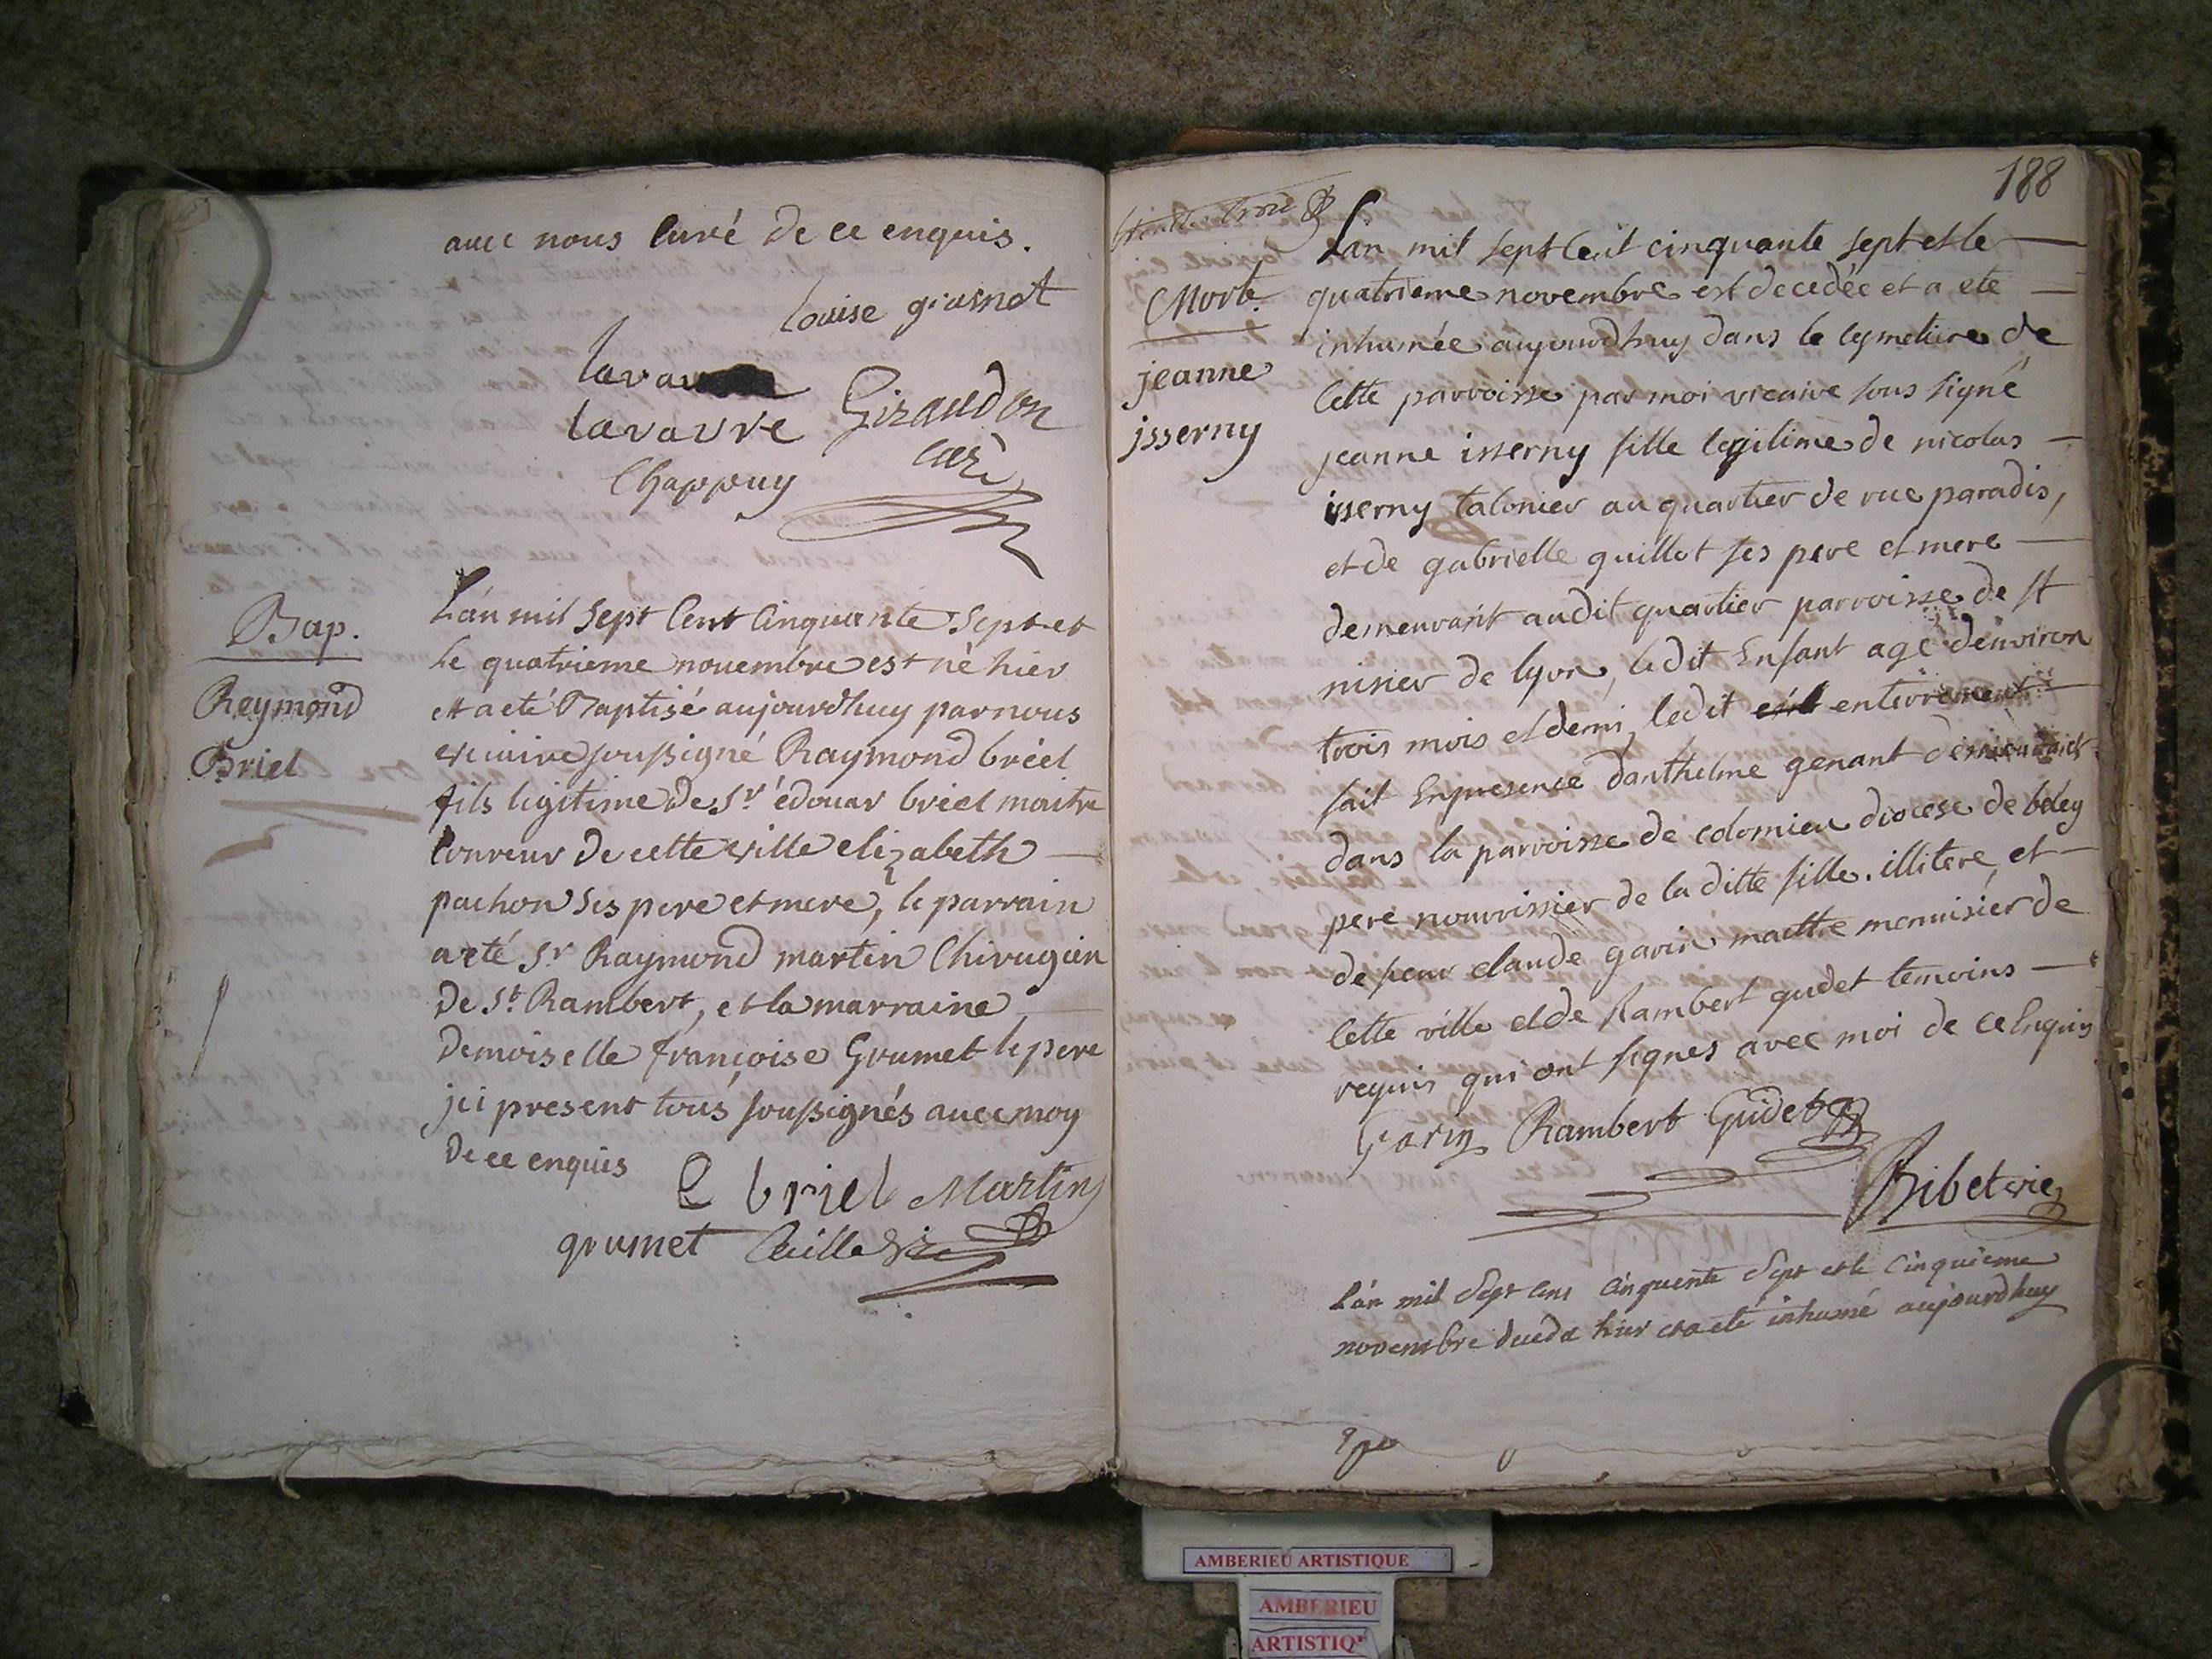 avec nous curé de ce enquis.
louise grasnot
lavaure
Giraudon
curé
Chappuy
Bap.
Reymond
Briel
L'an mil sept Cent Cinquante Sept et
le quatrieme novembre est né hier
et a eté Baptisé aujourdhuy par nous
vicaire soussigné Raymond briel
fils legitime de Sr édouar briel maitre
de cette ville elizabeth
pachon ses pere et mere, le parrain
a eté Sr Raymond martin Chirugien
de St Rambert, et la marraine
demoiselle françoise Grumet le pere
ici present tous soussignés avec moy
de ce enquis
E briel Martin
grumet
188
Morte
jeanne
jsserny
Lan mil sept Cent cinquante sept et le
quatrieme novembre est decedée et a ete
inhumée aujourdhuy dans le cymetiere de
Cette parroisse par moi vicaire sous signé
jeanne isserny fille legitime de nicolas
isserny talonier au quartier de rue paradis,
et de gabrielle guillot ses pere et mere
demeurant audit quartier parroisse de st
nisier de lyon, ledit Enfant agé denviron
trois mois et demi, ledit enterrement
fait En presence danthelme genant demeurant
dans la parroisse de colomieu diocese de beley
pere nourrissier de la ditte fille. illitere, et
de sieur claude garin maitre menuisier de
Cette ville et de Rambert gudet temoins
requis qui ont signes avec moi de ce Enquis
Garin Rambert Gudet
Ribet vic
L'an mil Sept Cent Cinquante Sept et le Cinquieme
novembre deceda hier et a eté inhumé aujourdhuy
AMBERIEU ARTISTIQUE
AMBERIEU
ARTISTIQ